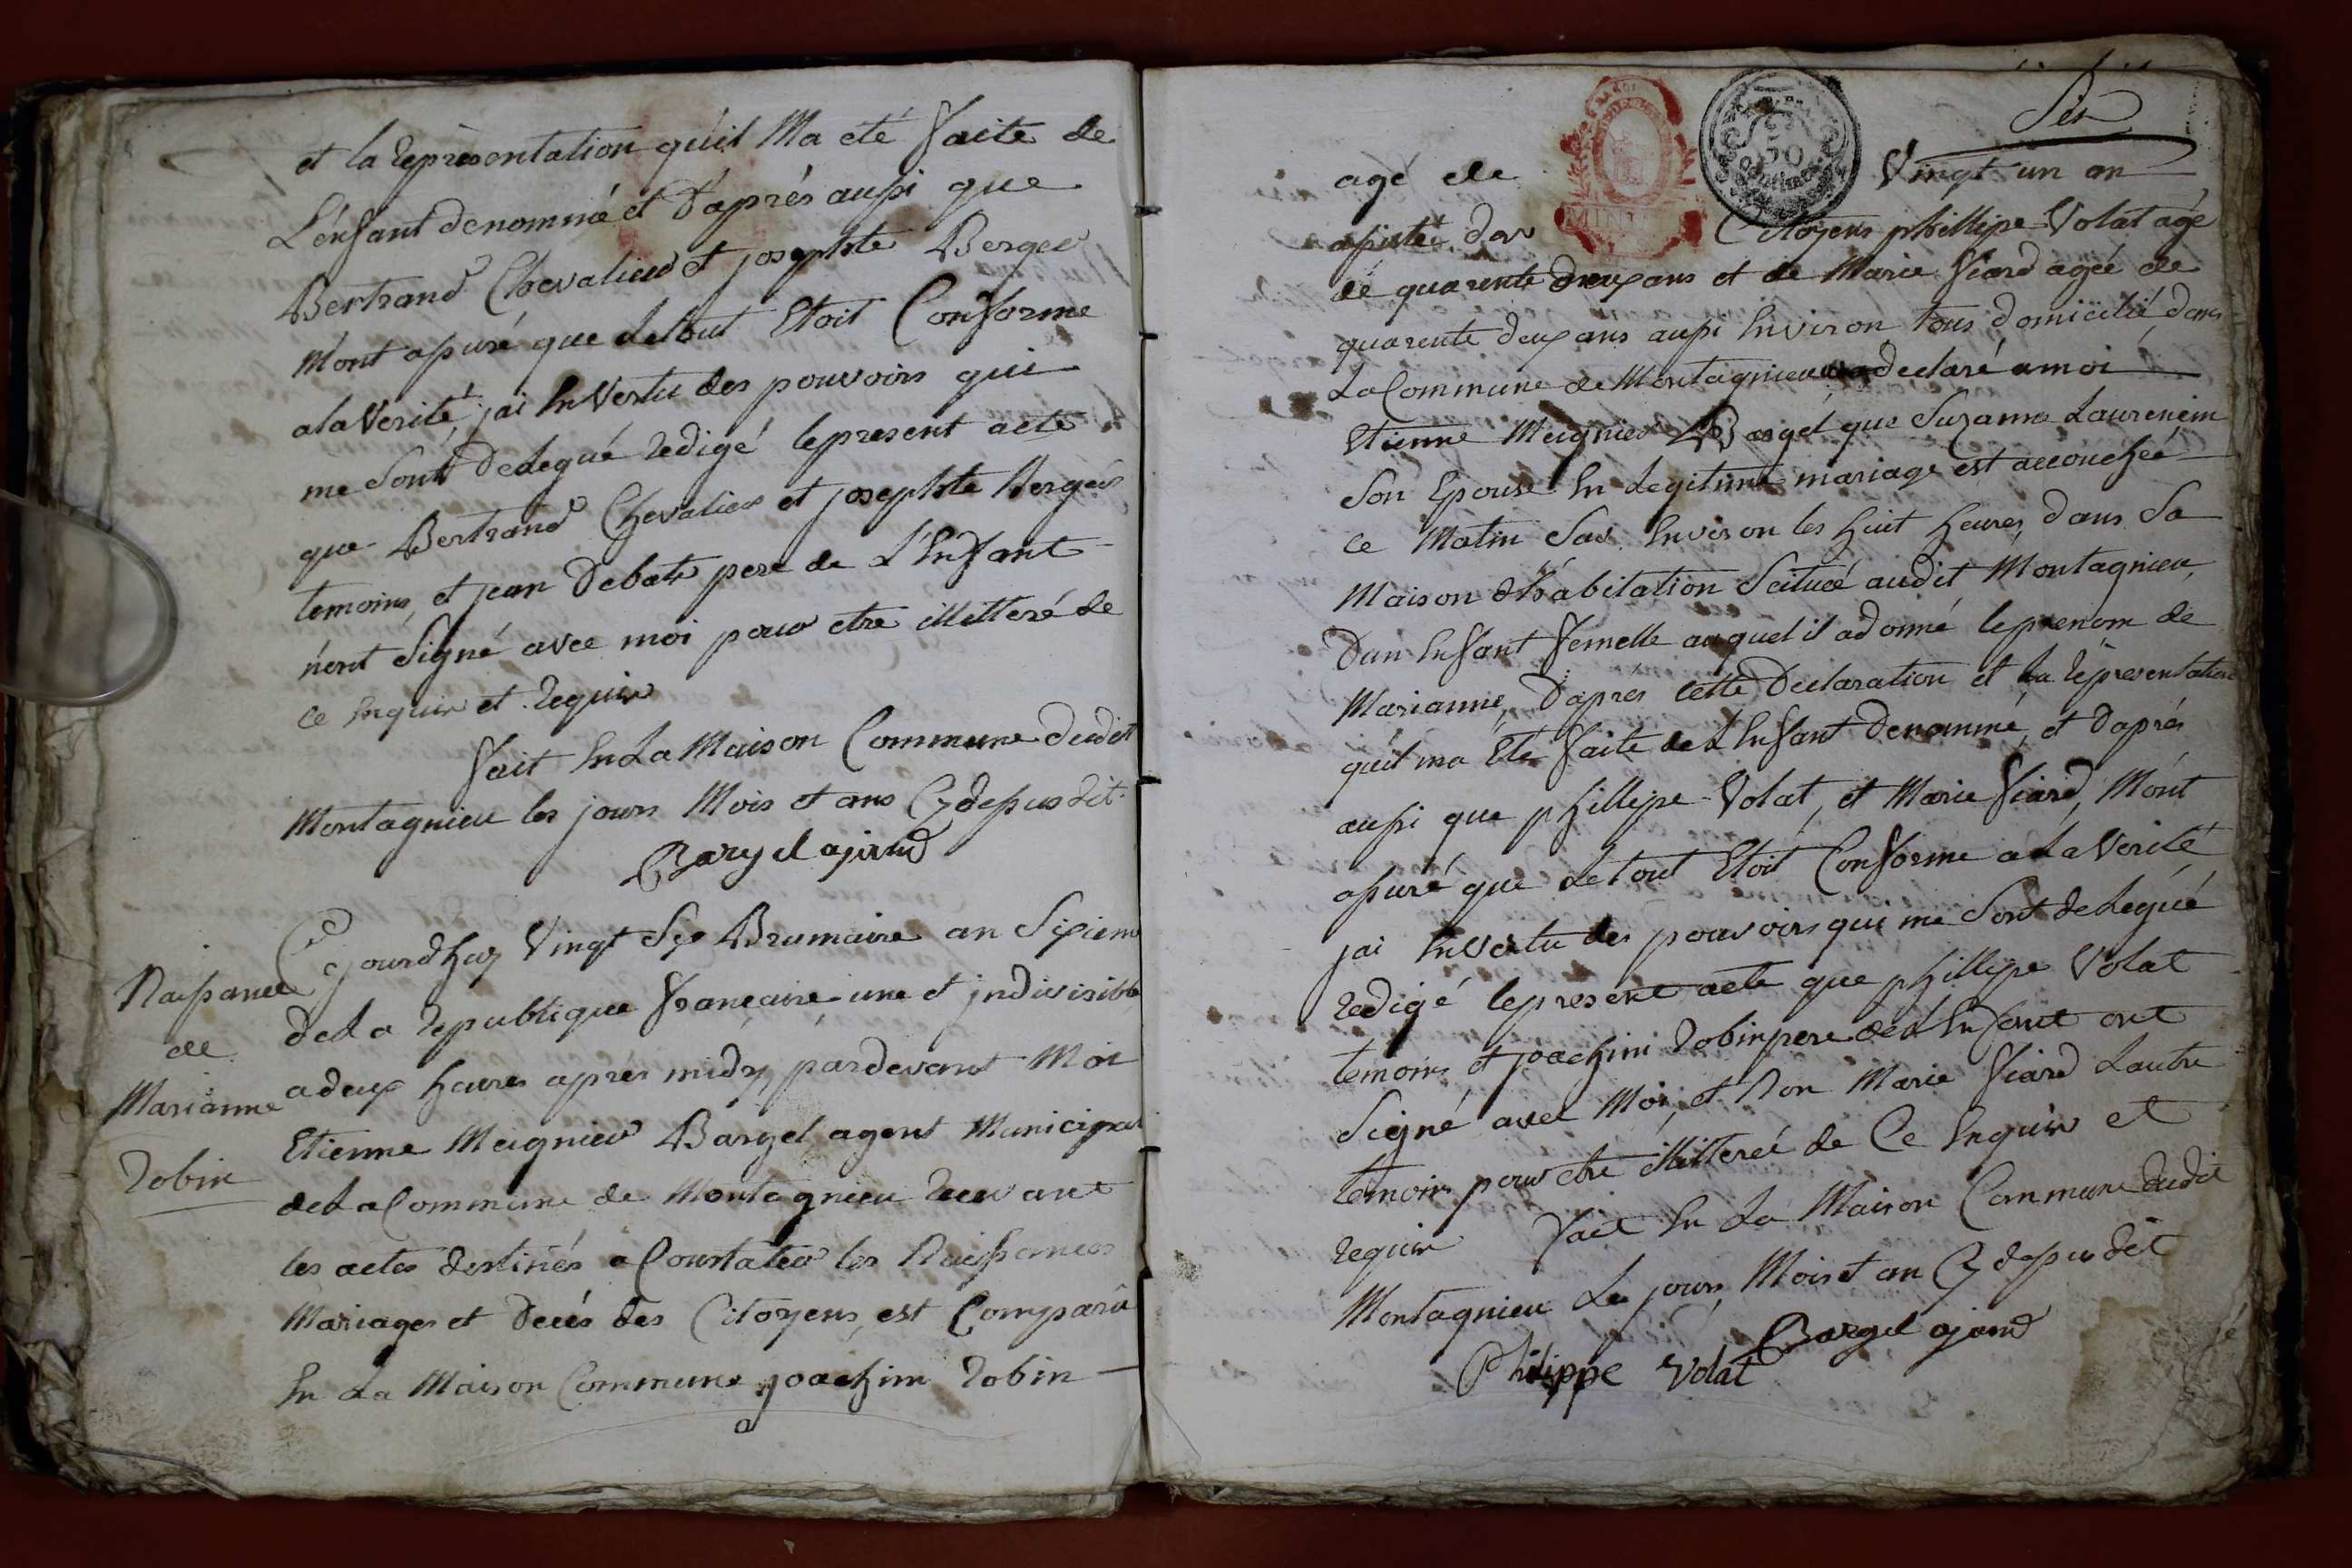 et la representation qu'il Ma eté faite de
L'enfant denommé et d'aprés aussi que
Bertrand Chevalier et josephte Berger
M'ont assuré que le tout Etoit Conforme
a la Verité, jai En Vertu des pouvoirs qui
me sont delegué redigé le present acte
que Bertrand Chevalier et josephte Berger
temoins, et jean Debat pere de L'Enfant
n'ont signé avec moi pour etre illetteré de
ce Enquis et requis
fait En La Maison Commune dudit
Montagnieu les jours Mois et ans Cy dessus dit
Bargel ajend
Naissance
de
Marianne
Robin
Cejourdhuy Vingt Six Brumaire an Sixieme
de La republique française une et jndivisible
a deux heures aprés midy pardevant Moi
Etienne Meignier Bargel agent Municipal
de La Commune de Montagnieu recevant
les actes destinés a Constater les Naissances
Mariages et Decés des Citoyens, est Comparu
En La Maison Commune joachim Robin
Six
50
agé de Vingt un an
assisté des Citoyens phillipe Volat agé
de quarente deux ans et de Marie fiard ageé de
quarente deux ans aussi Environ tous domicilié dans
La Commune de Montagnieu a declaré a moi
Etienne Meignier Bargel que Suzanne Laurencin
Son Epouse En Legitime mariage est accouchée
ce Matin Sur Environ les huit heures, dans Sa
Maison d'habitation Scitueé audit Montagnieu,
dun Enfant femelle auquel il a donné le prenom de
Marianne, d'apres cette declaration et La representation
qu'il ma Eté faite de L'Enfant denommé, et d'aprés
aussi que phillipe Volat, et Marie fiard, M'ont
assuré que Le tout Etoit Conforme a La Verité
jai En Vertu des pouvoirs qui me Sont delegué
redigé le present acte que phillipe Volat
temoins et joachim Robin pere de L'Enfant ont
Signé avec Moi, et Non Marie fiard Lautre
temoin pour etre illettereé de Ce Enquis et
requis fait En La Maison Commune dudit
Montagnieu Les jours Mois et an Cy dessus dit
Bargel ajend
Philippe Volat